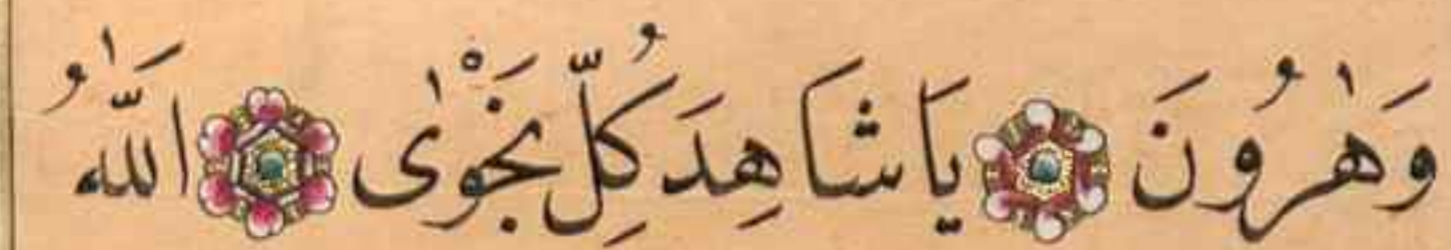 وَهٰرُونَ يَا شَاهِدَ كُلِّ نَجْوٰى اَللّٰهُ